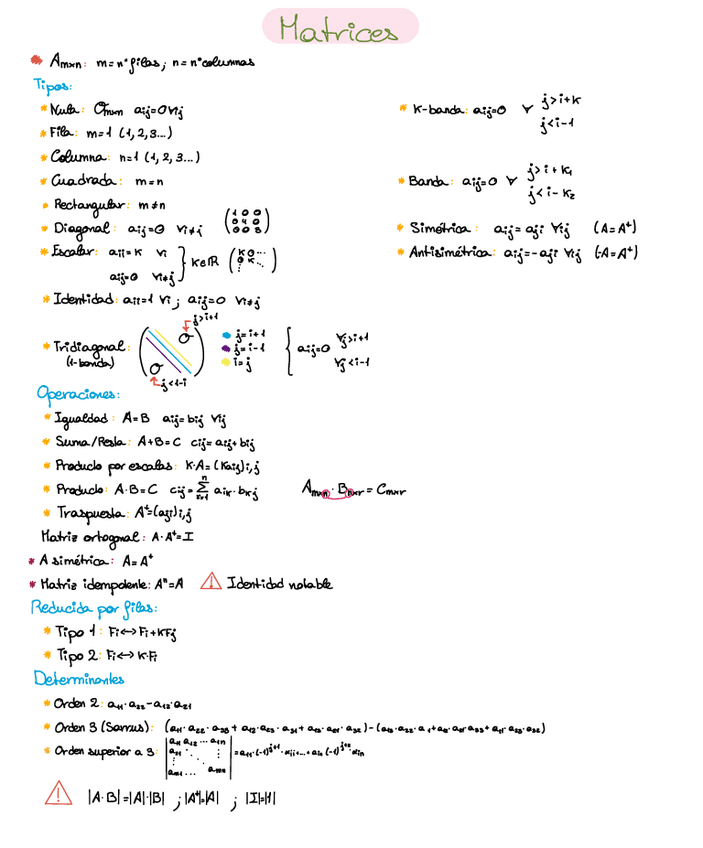 Matrices
Amxn: m = nº filas; n = nº columnas
Tipos:
* Nula: Omxn aij=0 ∀ij
* Fila: m=1 (1,2,3...)
* Columna: n=1 (1,2,3...)
* Cuadrada: m=n
* Rectangular: m≠n
* Diagonal: aij=0 ∀i≠j (1 0 0 / 0 4 0 / 0 0 8)
* Escalar: aii=K ∀i
aij=0 ∀i≠j } K∈ℝ (K 0 ... / 0 K ...)
* Identidad: aii=1 ∀i; aij=0 ∀i≠j
* Tridiagonal:
(1-banda)
j>i+1
O
O
j<1-i
j=i+1
j=i-1
i=j
{ aij=0 ∀j>i+1
∀j<i-1
* K-banda: aij=0 ∀ j>i+K
j<i-1
* Banda: aij=0 ∀ j>i+K1
j<i-K2
* Simétrica: aij=aji ∀ij (A=Aᵗ)
* Antisimétrica: aij=-aji ∀ij (-A=Aᵗ)
Operaciones:
* Igualdad: A=B aij=bij ∀ij
* Suma/Resta: A+B=C cij=aij+bij
* Producto por escalas: K·A=(Kaij)i,j
* Producto: A·B=C cij=∑ aik·bkj Amxn·Bnxr=Cmxr
* Traspuesta: Aᵗ=(aji)i,j
Matriz ortogonal: A·Aᵗ=I
* A simétrica: A=Aᵗ
* Matriz idempotente: Aⁿ=A ⚠ Identidad notable
Reducida por filas:
* Tipo 1: Fi↔Fi+KFj
* Tipo 2: Fi↔K·Fi
Determinantes
* Orden 2: a11·a22-a12·a21
* Orden 3 (Sarrus):
* Orden superior a 3:
⚠ |A·B|=|A|·|B| ; |Aᵗ|=|A| ; |I|=|1|